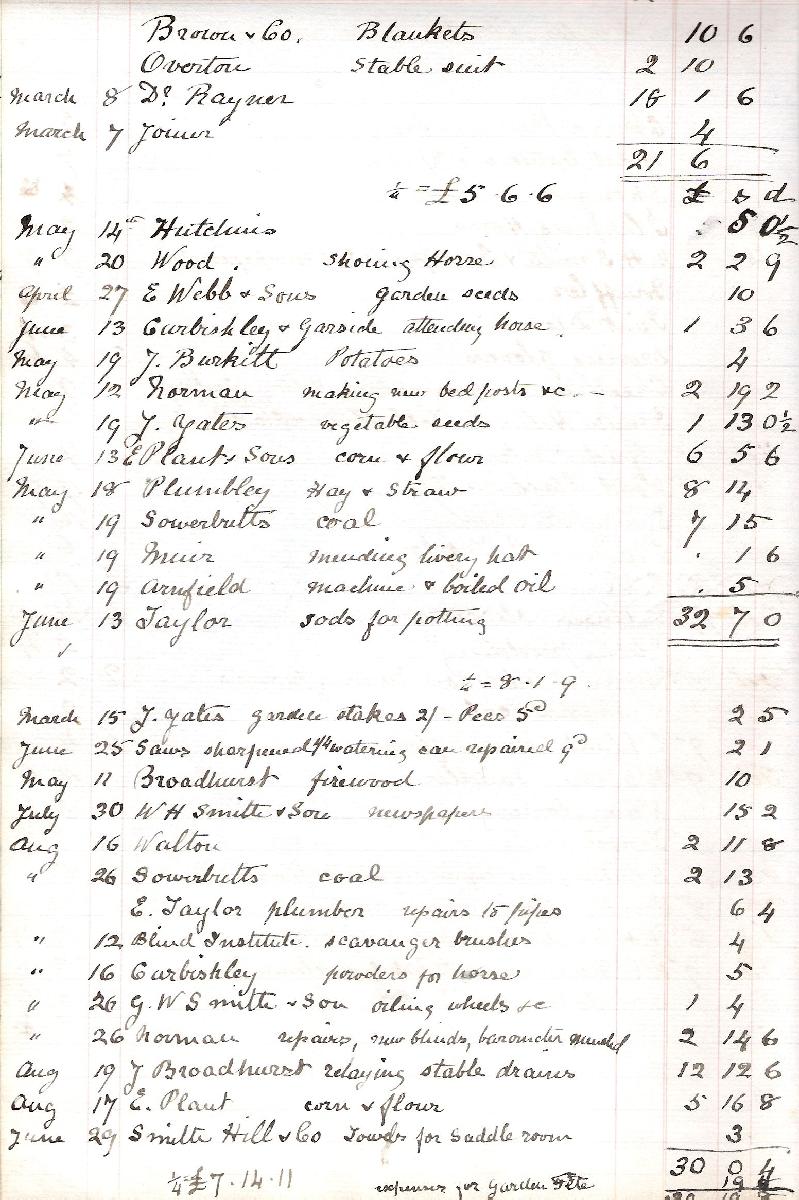 Brown & Co. Blankets 10 6
Overton Stable suit 2 10
March 8 Dr Rayner 18 1 6
March 7 Joiner 4
21 6
¼ = £5.6.6 £ s d
May 14th Hutchins 5 0½
" 20 Wood. Shoeing Horse 2 2 9
April 27 E Webb & Sons garden seeds 10
June 13 Curbishley & Garside attending horse. 1 3 6
May 19 J. Burkitt Potatoes 4
May 12 Norman making new bed posts &c. - 2 19 2
" 19 J. Yates vegetable seeds 1 13 0½
June 13 E Plant & Sons corn & flour 6 5 6
May 18 Plumbley Hay & Straw 8 14
" 19 Sowerbutts coal 7 15
" 19 Muir mending livery hat . 1 6
" 19 Arnfield machine & boiled oil . 5
June 13 Taylor sods for potting 32 7 0
¼ = 8.1.9.
March 15 J. Yates garden stakes 2/- Peas 5d 2 5
June 25 Saws sharpened 1/4 watering can repaired 9d 2 1
May 11 Broadhurst firewood 10
July 30 W H Smith & Son newspapers 15 2
Aug 16 Walton 2 11 8
" 26 Sowerbutts coal 2 13
E. Taylor plumber repairs to pipes 6 4
" 12 Blind Institute. scavanger brushes 4
" 16 Curbishley powders for horse 5
" 26 G. W Smith & Son oiling wheels &c 1 4
" 26 Norman repairs, new blinds, barometer mended 2 14 6
Aug 19 J Broadhurst relaying stable drains 12 12 6
Aug 17 E. Plant corn & flour 5 16 8
June 29 Smith Hill & Co Towels for Saddle room 3
30 0 4
¼ £7.14.11 expenses for Garden Fete 19